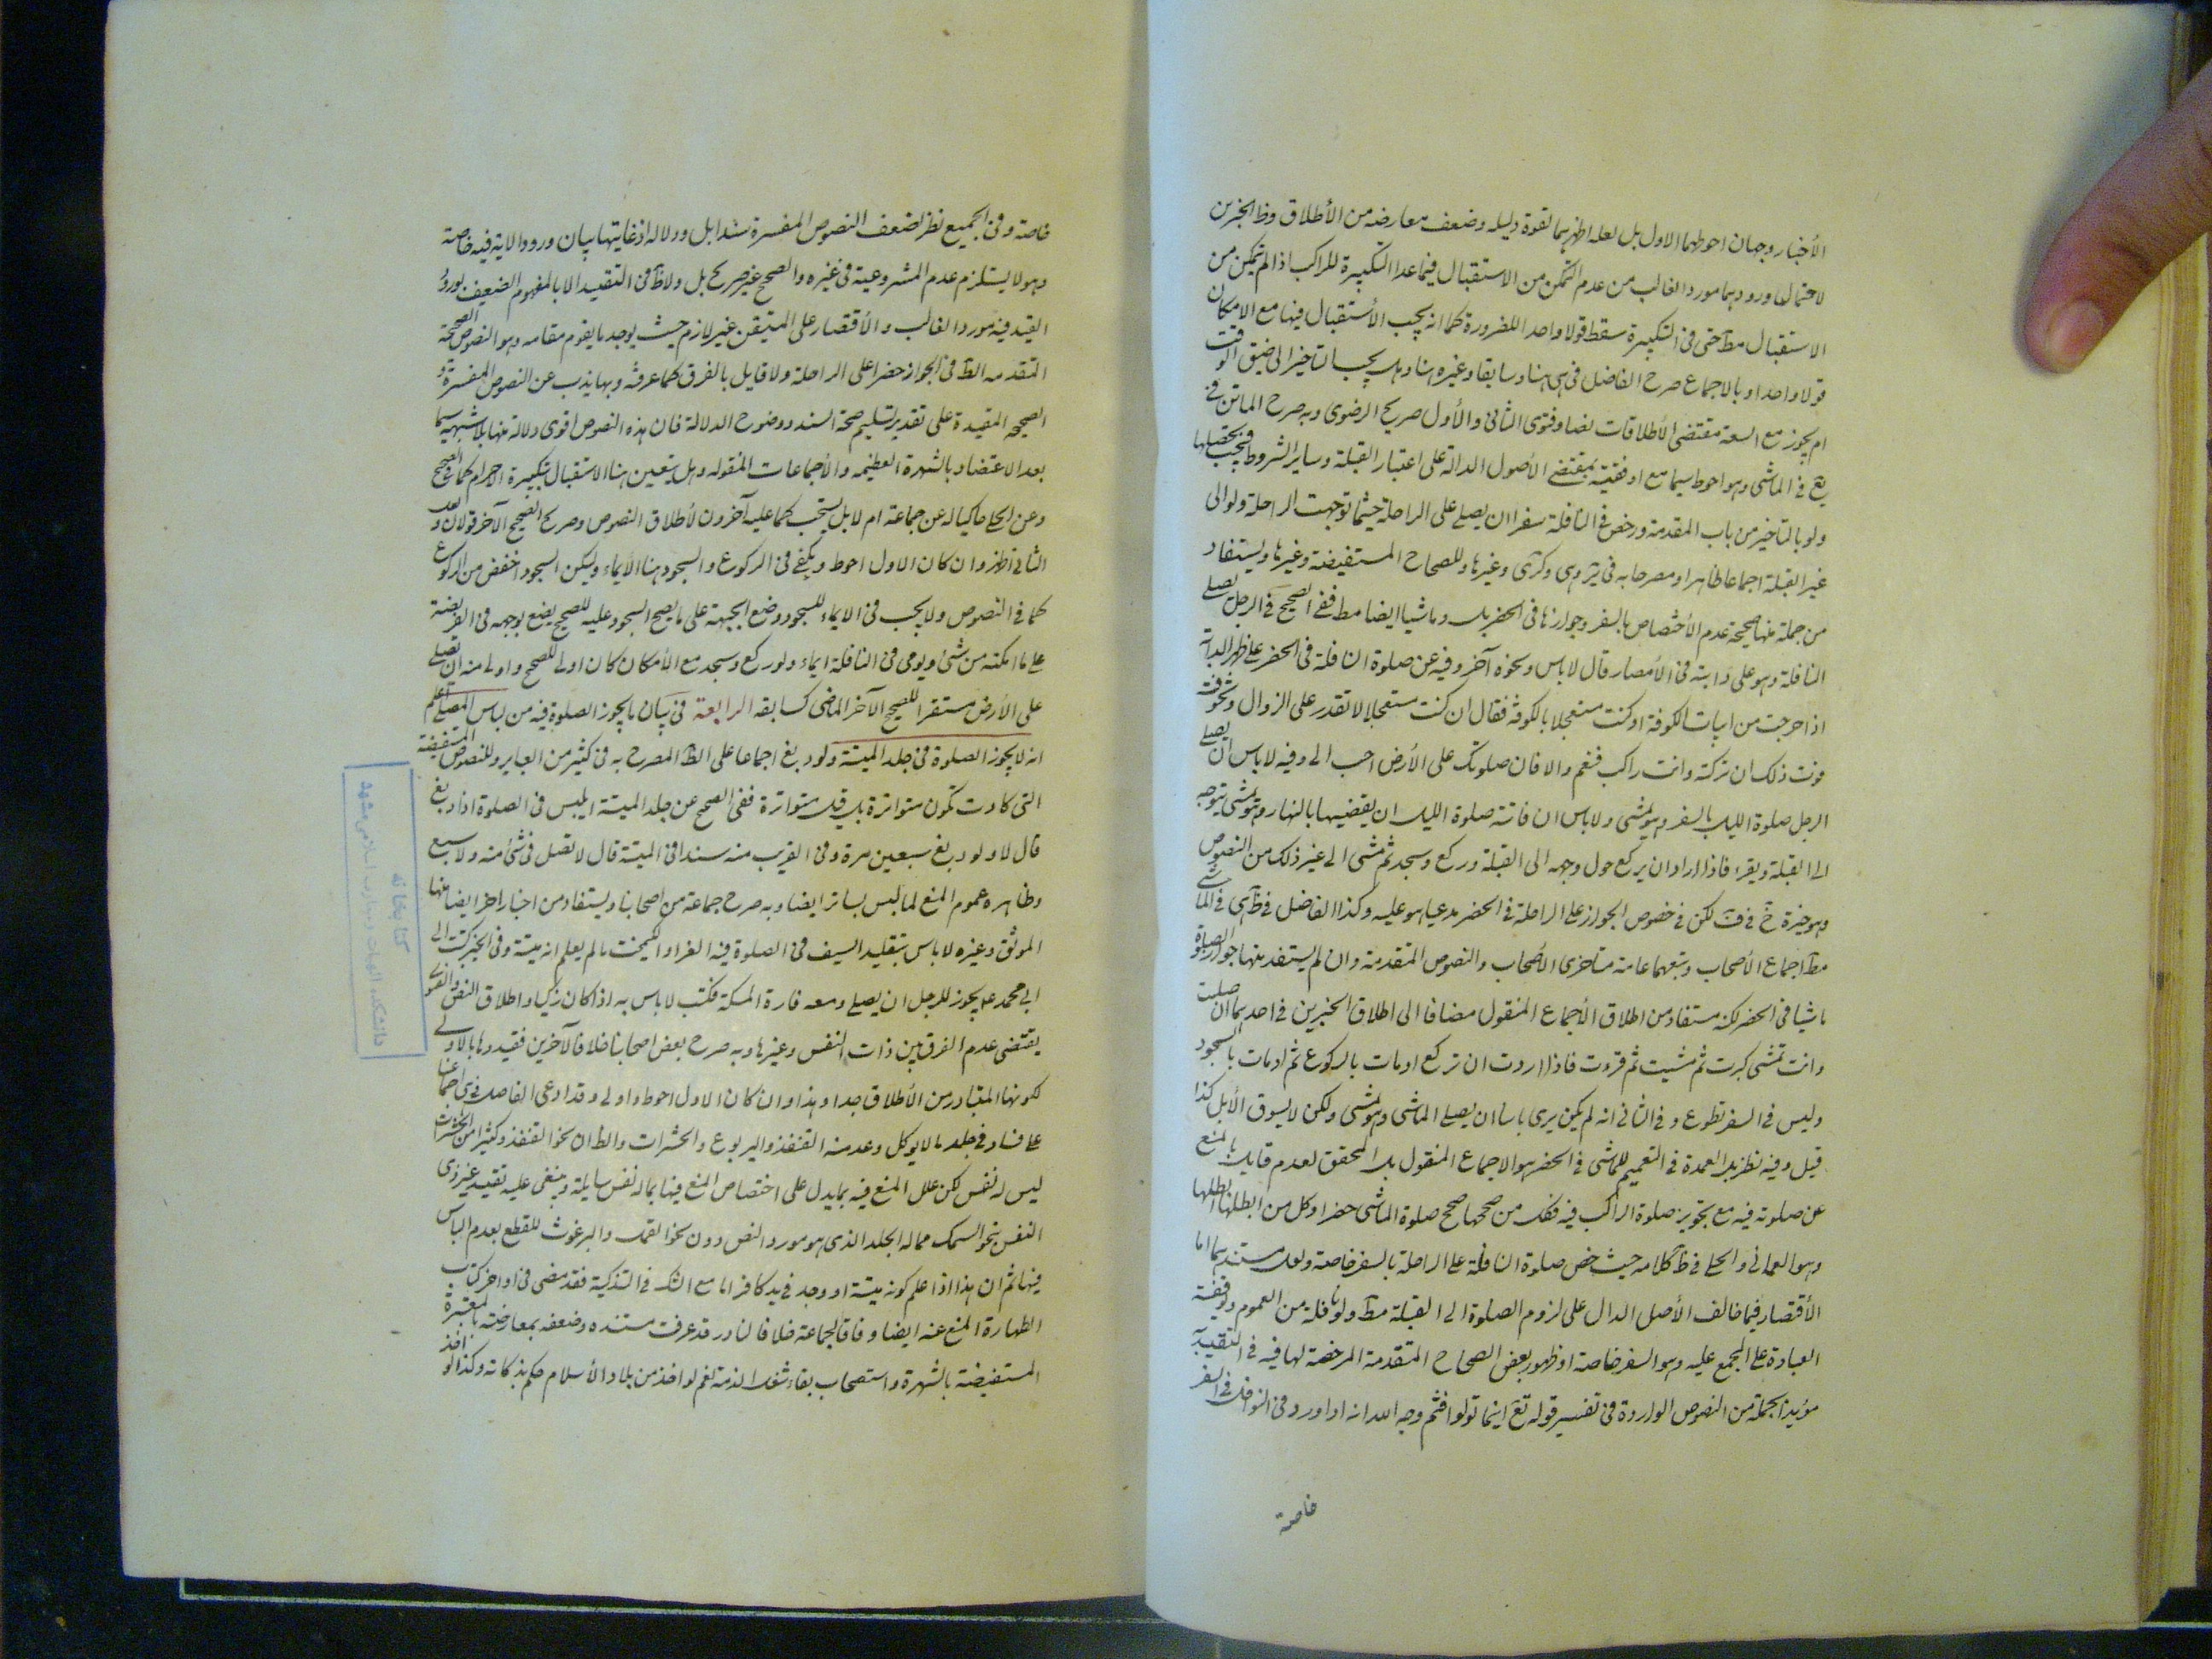 الأخبار وجهان احوطهما الاول بل لعله اظهرهما لقوة دليله وضعف معارضه من الأطلاق وظ الخبرين
لاحتمال ورودهما مورد الغالب من عدم التمكن من الاستقبال فيما عدا التكبيرة للراكب اذا لم يتمكن من
الاستقبال مطّ حتى فى التكبيرة سقط قولا واحدا للضرورة كما انه يجب الأستقبال فيها مع الامكان
قولا واحدا وبالاجماع صرح الفاضل فى هى هنا وسابقا وغيره هنا وهل يجب التاخير الى ضيق الوقت
ام يجوز مع السعة مقتضى الأطلاقات نصا وفتوى الثانى والأول صريح الرضوى وبه صرح الماتن فى
يع فى الماشى وهو احوط سيما مع اوفقيته بمقتضى الأصول الدالة على اعتبار القبلة وساير الشروط فيجب تحصيلها
ولو بالتاخير من باب المقدمة ورخص فى النافلة سفرا ان يصلى على الراحلة حيثما توجهت الراحلة ولو الى
غير القبلة اجماعا ظاهرا ومصرحا به فى وكرى وغيرها وللصحاح المستفيضة وغيرها ويستفاد
من جملة منها صحيحة عدم الأختصاص بالسفر وجوازها فى الحضر بل وماشيا ايضا مط ففى الصحيح فى الرجل يصلى
النافلة وهو على دابته فى الأمصار قال لاباس ونحوه آخر وفيه عن صلوة النافلة فى الحضر على ظهر الدابة
اذا خرجت من ابيات الكوفة او كنت مستعجلا بالكوفة فقال ان كنت مستعجلا لا تقدر على الزوال وتخوفت
فوت ذلك ان تركته وانت راكب فنعم والا فان صلوتك على الأرض احب الى وفيه لاباس ان يصلى
الرجل صلوة الليل بالسفر وهو يمشى ولاباس ان فاتته صلوة الليل ان يقضيها بالنهار وهو يمشى يتوجه
الى القبلة ويقرا فاذا اراد ان يركع حول وجهه الى القبلة وركع وسجد ثم مشى الى غير ذلك من النصوص
وهو خيرة خ فى ف لكن فى خصوص الجواز على الراحلة فى الحضر مدعيا هو عليه وكذا الفاضل فى ظ هى فى الماشى
مطّ اجماع الأصحاب وتبعهما عامة متاخرى الأصحاب والنصوص المتقدمة وان لم يستفد منها جواز الصلوة
ماشيا فى الحضر لكنه مستفاد من اطلاق الأجماع المنقول مضافا الى اطلاق الخبرين فى احدهما ان صليت
وانت تمشى كبرت ثم مشيت ثم قرءت فاذا اردت ان تركع اومات بالركوع ثم اومات بالسجود
وليس فى السفر تطوع وفى الثانى انه لم يكن يرى باسا ان يصلى الماشى وهو يمشى ولكن لا يسوق الأبل كذا
قيل وفيه نظر بل العمدة فى التعميم للماشى فى الحضر هو الاجماع المنقول بل المحقق لعدم قايل بالمنع
عن صلوته فيه مع تجويز صلوة الراكب فيه فكل من صححها صحح صلوة الماشى حضرا وكل من ابطلها ابطلها
وهو العمانى والحلى فى ظ كلامه حيث خص صلوة النافلة على الراحلة بالسفر خاصة ولعل مستندهما اما
الأقتصار فيما خالف الأصل الدال على لزوم الصلوة الى القبلة مطّ ولو نافلة من العموم وتوقيفية
العبادة على المجمع عليه وهو السفر خاصة او ظهور بعض الصحاح المتقدمة المرخصة لها فيه فى التقييد
مؤيدا بجملة من النصوص الواردة فى تفسير قوله تع اينما تولوا فثم وجه الله انه اوارد فى النوافل فى السفر
خاصة
خاصة وفى الجميع نظر لضعف النصوص المفسرة سندا بل ودلالة اذ غايتها بيان ورود الاية فيه خاصة
وهو لا يستلزم عدم المشروعية فى غيره والصحيح غير صريح بل ولا ظّ فى التقييد الا بالمفهوم الضعيف بورود
القيد فيه مورد الغالب والأقتصار على المتيقن غير لازم حيث يوجد ما يقوم مقامه وهو النصوص الصحيحة
المتقدمة الظّ فى الجواز حضرا على الراحلة ولا قايل بالفرق كما عرفته وبها يذب عن النصوص المفسرة و
الصحيح المقيدة على تقدير تسليم صحة السند ووضوح الدلالة فان هذه النصوص اقوى دلالة منها بلا شبهة سيما
بعد الاعتضاد بالشهرة العظيمه والأجماعات المنقوله وهل يتعين هنا الاستقبال بتكبيرة الاحرام كما فى الصحيح
وعن الحلى حاكيا له عن جماعة ام لا بل يستحب كما عليه آخرون لأطلاق النصوص وصريح الصحيح الآخر قولان ولعل
الثانى اظهر وان كان الاول احوط ويكفى فى الركوع والسجود هنا الأيماء وليكن السجود اخفض من الركوع
كما فى النصوص ولا يجب فى الايماء للسجود وضع الجبهة على ما يصح السجود عليه للصحيح يضع بوجهه فى الفريضة
على ما امكنه من شئ ويومى فى النافلة ايماء ولو ركع وسجد مع الأمكان كان اولى للصحيح واولى منه ان يصلى
على الأرض مستقرا للصحيح الآخر الماضى كسابقه الرابعة فى بيان ما يجوز الصلوة فيه من لباس المصلى اعلم
انه لا يجوز الصلوة فى جلد الميتة ولو دبغ اجماعا على الظّ المصرح به فى كثير من العباير وللنصوص المستفيضة
التى كادت تكون متواترة بل قيل متواترة ففى الصحيح عن جلد الميتة ايلبس فى الصلوة اذا دبغ
قال لا ولو دبغ سبعين مرة وفى القريب منه سندا فى الميتة قال لا تصل فى شئ منه ولا شسع
وظاهره عموم المنع لما ليس بساتر ايضا وبه صرح جماعة من اصحابنا ويستفاد من اخبار اخر ايضا منها
الموثق وغيره لاباس بتقليد السيف فى الصلوة فيه الغراء والكيمخت ما لم يعلم انه ميتة وفى الخبر كتبت الى
ابى محمد ع يجوز للرجل ان يصلى ومعه فارة المسك فكتب لاباس به اذا كان ذكيا واطلاق النص والفتوى
يقتضى عدم الفرق بين ذات النفس وغيرها وبه صرح بعض اصحابنا خلافا لآخرين فقيدوها بالاولى
لكونها المتبادر من الأطلاق جدا وهذا وان كان الاول احوط واولى وقد ادعى الفاضل فى هى اجماعنا
على فساد فى جلد ما لا يوكل وعد منه القنفذ واليربوع والحشرات والظ ان نحو القنفذ وكثيرا من الحشرات
ليس له نفس لكن علل المنع فيه بما يدل على اختصاص المنع فيها بما له نفس سايلة وينبغى عليه تقييد غير ذى
النفس بنحو السمك مما له الجلد الذى هو مورد النص دون نحو القمل والبرغوث للقطع بعدم الباس
فيها ثم ان هذا اذا علم كونه ميتة او وجد فى يد كافر اما مع الشك فى التذكية فقد مضى فى اواخر كتاب
الطهارة المنع عنه ايضا وفاقا لجماعة خلافا لنادر قد عرفت مستنده وضعفه بمعارضته بالمعتبرة
المستفيضة بالشهرة واستصحاب بقاء شغل الذمة نعم لو اخذ من بلاد الأسلام حكم بذكاته وكذا لو اخذ
كتابخانه
دانشكده الهيات ومعارف اسلامى مشهد